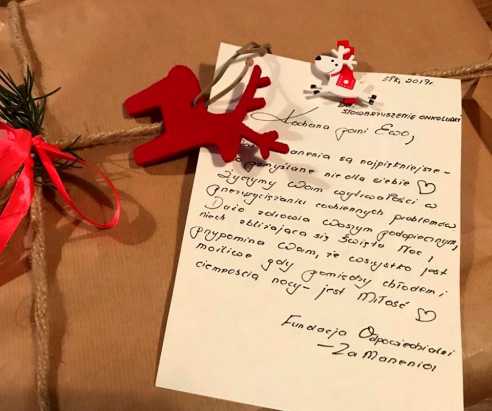 2019r
STOWARZYSZENIE
Kochana Pani Ewo,
są najpiękniejsze -
pomyślane nie dla siebie ♡
Życzymy Wam wytrwałości w
codziennych problemów
Dużo zdrowia Waszym podopiecznym,
niech zbliżająca się Święta Noc,
przypomina Wam, że wszystko jest
możliwe gdy pomiędzy chłodem i
ciemnością nocy - jest Miłość ♡
Fundacja Odpowiedzialni
- Za Marzenia